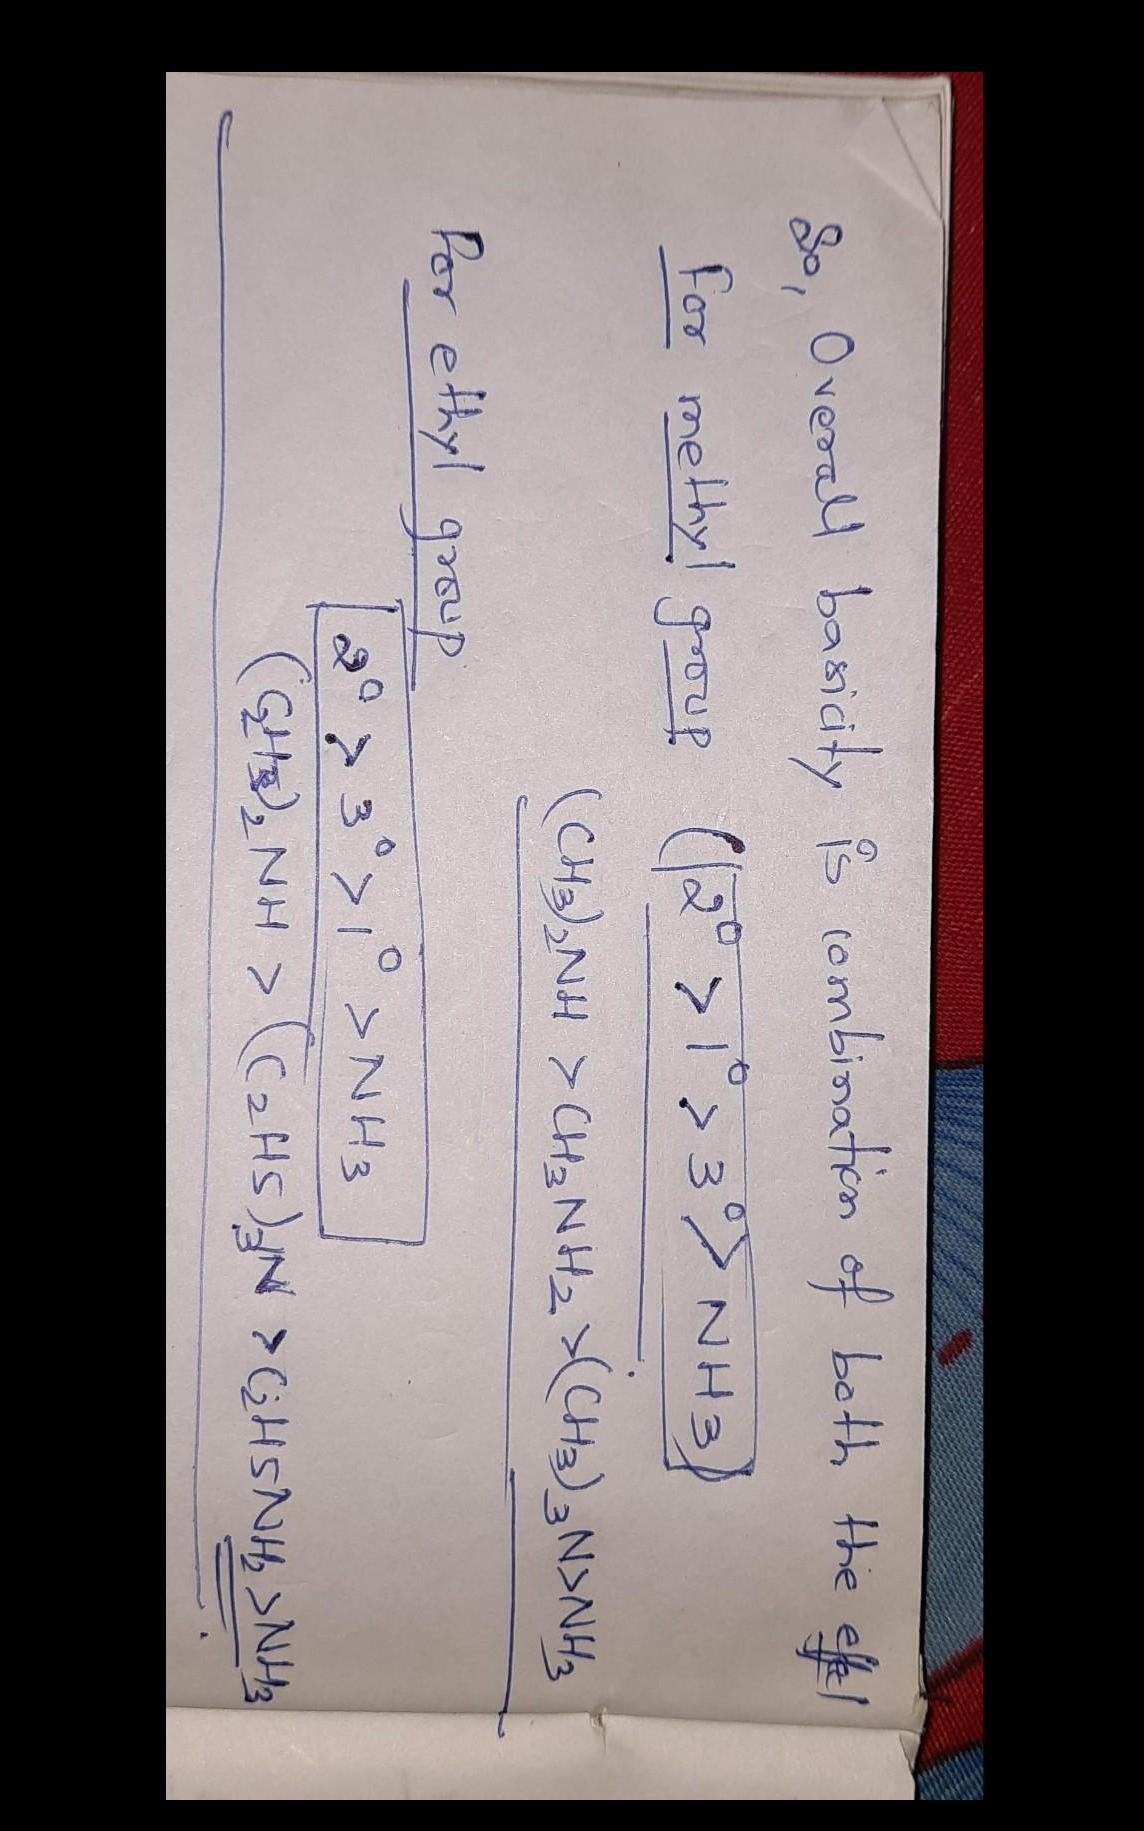 So, Overall basicity is combination of both the
for methyl group (2° > 1° > 3° > NH3)
(CH3)2NH > CH3NH2 > (CH3)3N > NH3
For ethyl group
2° > 3° > 1° > NH3
(C2H5)2NH > (C2H5)3N > C2H5NH2 > NH3